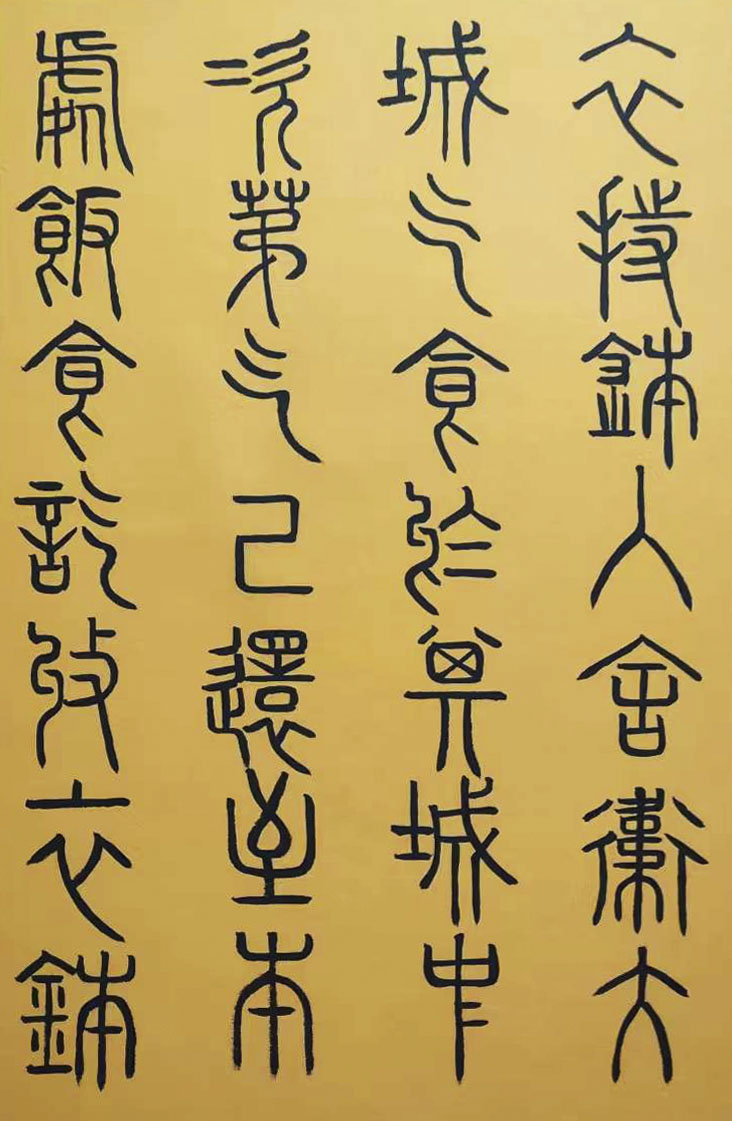 衣持鉢入舍衛大
城乞食於其城中
次第乞已還至本
處飯食訖收衣鉢